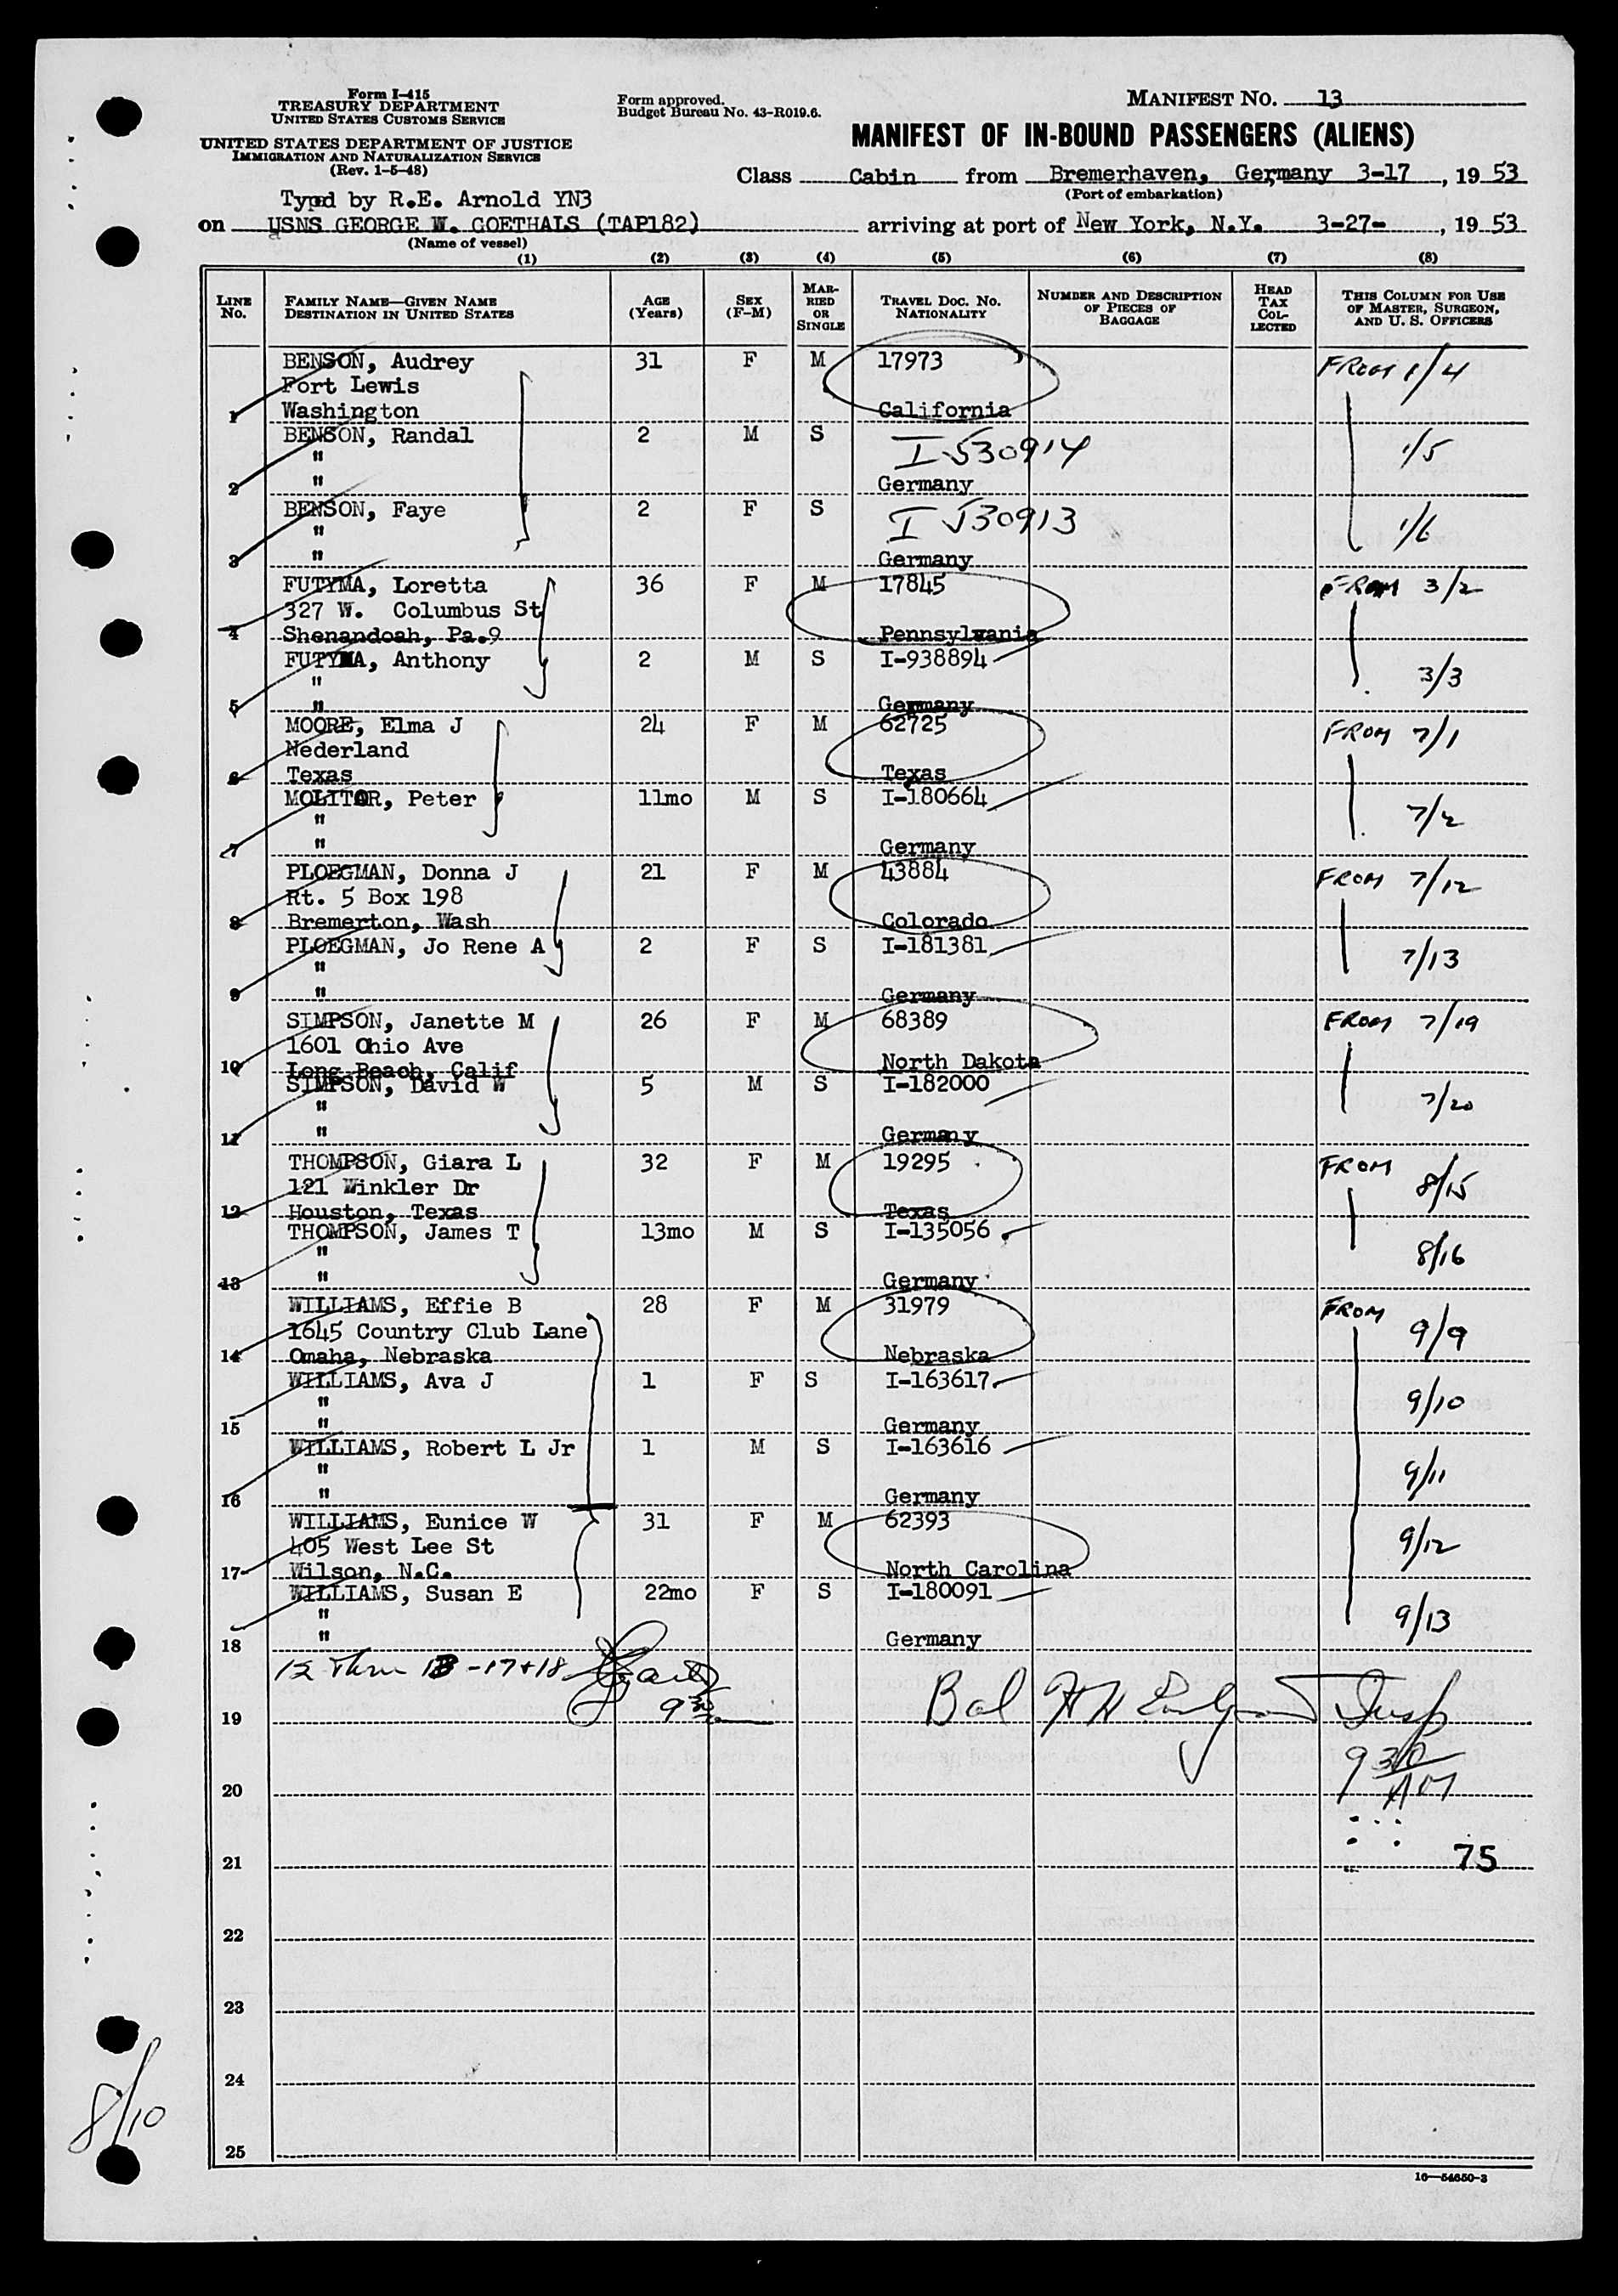 Form I-415
TREASURY DEPARTMENT
UNITED STATES CUSTOMS SERVICE
UNITED STATES DEPARTMENT OF JUSTICE
IMMIGRATION AND NATURALIZATION SERVICE
(Rev. 1-5-48)
Form approved.
Budget Bureau No. 43-R019.6.
MANIFEST NO. 13
MANIFEST OF IN-BOUND PASSENGERS (ALIENS)
Class Cabin from Bremerhaven, Germany 3-17, 1953
(Port of embarkation)
Typed by R.E. Arnold YN3
on USNS GEORGE W. GOETHALS (TAP182) arriving at port of New York, N.Y. 3-27-, 1953
(Name of vessel)
(1) (2) (3) (4) (5) (6) (7) (8)
LINE No. FAMILY NAME—GIVEN NAME DESTINATION IN UNITED STATES AGE (Years) SEX (F-M) MARRIED OR SINGLE TRAVEL DOC. NO. NATIONALITY NUMBER AND DESCRIPTION OF PIECES OF BAGGAGE HEAD TAX COLLECTED THIS COLUMN FOR USE OF MASTER, SURGEON, AND U. S. OFFICERS
BENSON, Audrey 31 F M 17973 FROM 1/4
Fort Lewis
1 Washington California
BENSON, Randal 2 M S I-530914 1/5
"
2 " Germany
BENSON, Faye 2 F S I 530913 1/6
"
3 " Germany
FUTYMA, Loretta 36 F M 17845 FROM 3/2
327 W. Columbus St
4 Shenandoah, Pa.9 Pennsylvania
FUTYMA, Anthony 2 M S I-938894 3/3
"
5 " Germany
MOORE, Elma J 24 F M 62725 FROM 7/1
Nederland
6 Texas Texas
MOLITOR, Peter 11mo M S I-180664 7/2
"
7 " Germany
PLOEGMAN, Donna J 21 F M 43884 FROM 7/12
Rt. 5 Box 198
8 Bremerton, Wash Colorado
PLOEGMAN, Jo Rene A 2 F S I-181381 7/13
"
9 " Germany
SIMPSON, Janette M 26 F M 68389 FROM 7/19
1601 Ohio Ave
10 Long Beach, Calif North Dakota
SIMPSON, David W 5 M S I-182000 7/20
"
11 " Germany
THOMPSON, Giara L 32 F M 19295 FROM 8/15
121 Winkler Dr
12 Houston, Texas Texas
THOMPSON, James T 13mo M S I-135056 8/16
"
13 " Germany
WILLIAMS, Effie B 28 F M 31979 FROM 9/9
1645 Country Club Lane
14 Omaha, Nebraska Nebraska
WILLIAMS, Ava J 1 F S I-163617 9/10
"
15 " Germany
WILLIAMS, Robert L Jr 1 M S I-163616 9/11
"
16 " Germany
WILLIAMS, Eunice W 31 F M 62393 9/12
405 West Lee St
17 Wilson, N.C. North Carolina
WILLIAMS, Susan E 22mo F S I-180091 9/13
"
18 " Germany
12 Thru 13 - 17+18
19 Bal H H Insp
9 30 AM
20
21 75
22
23
24
25
8/10
16—54650-3